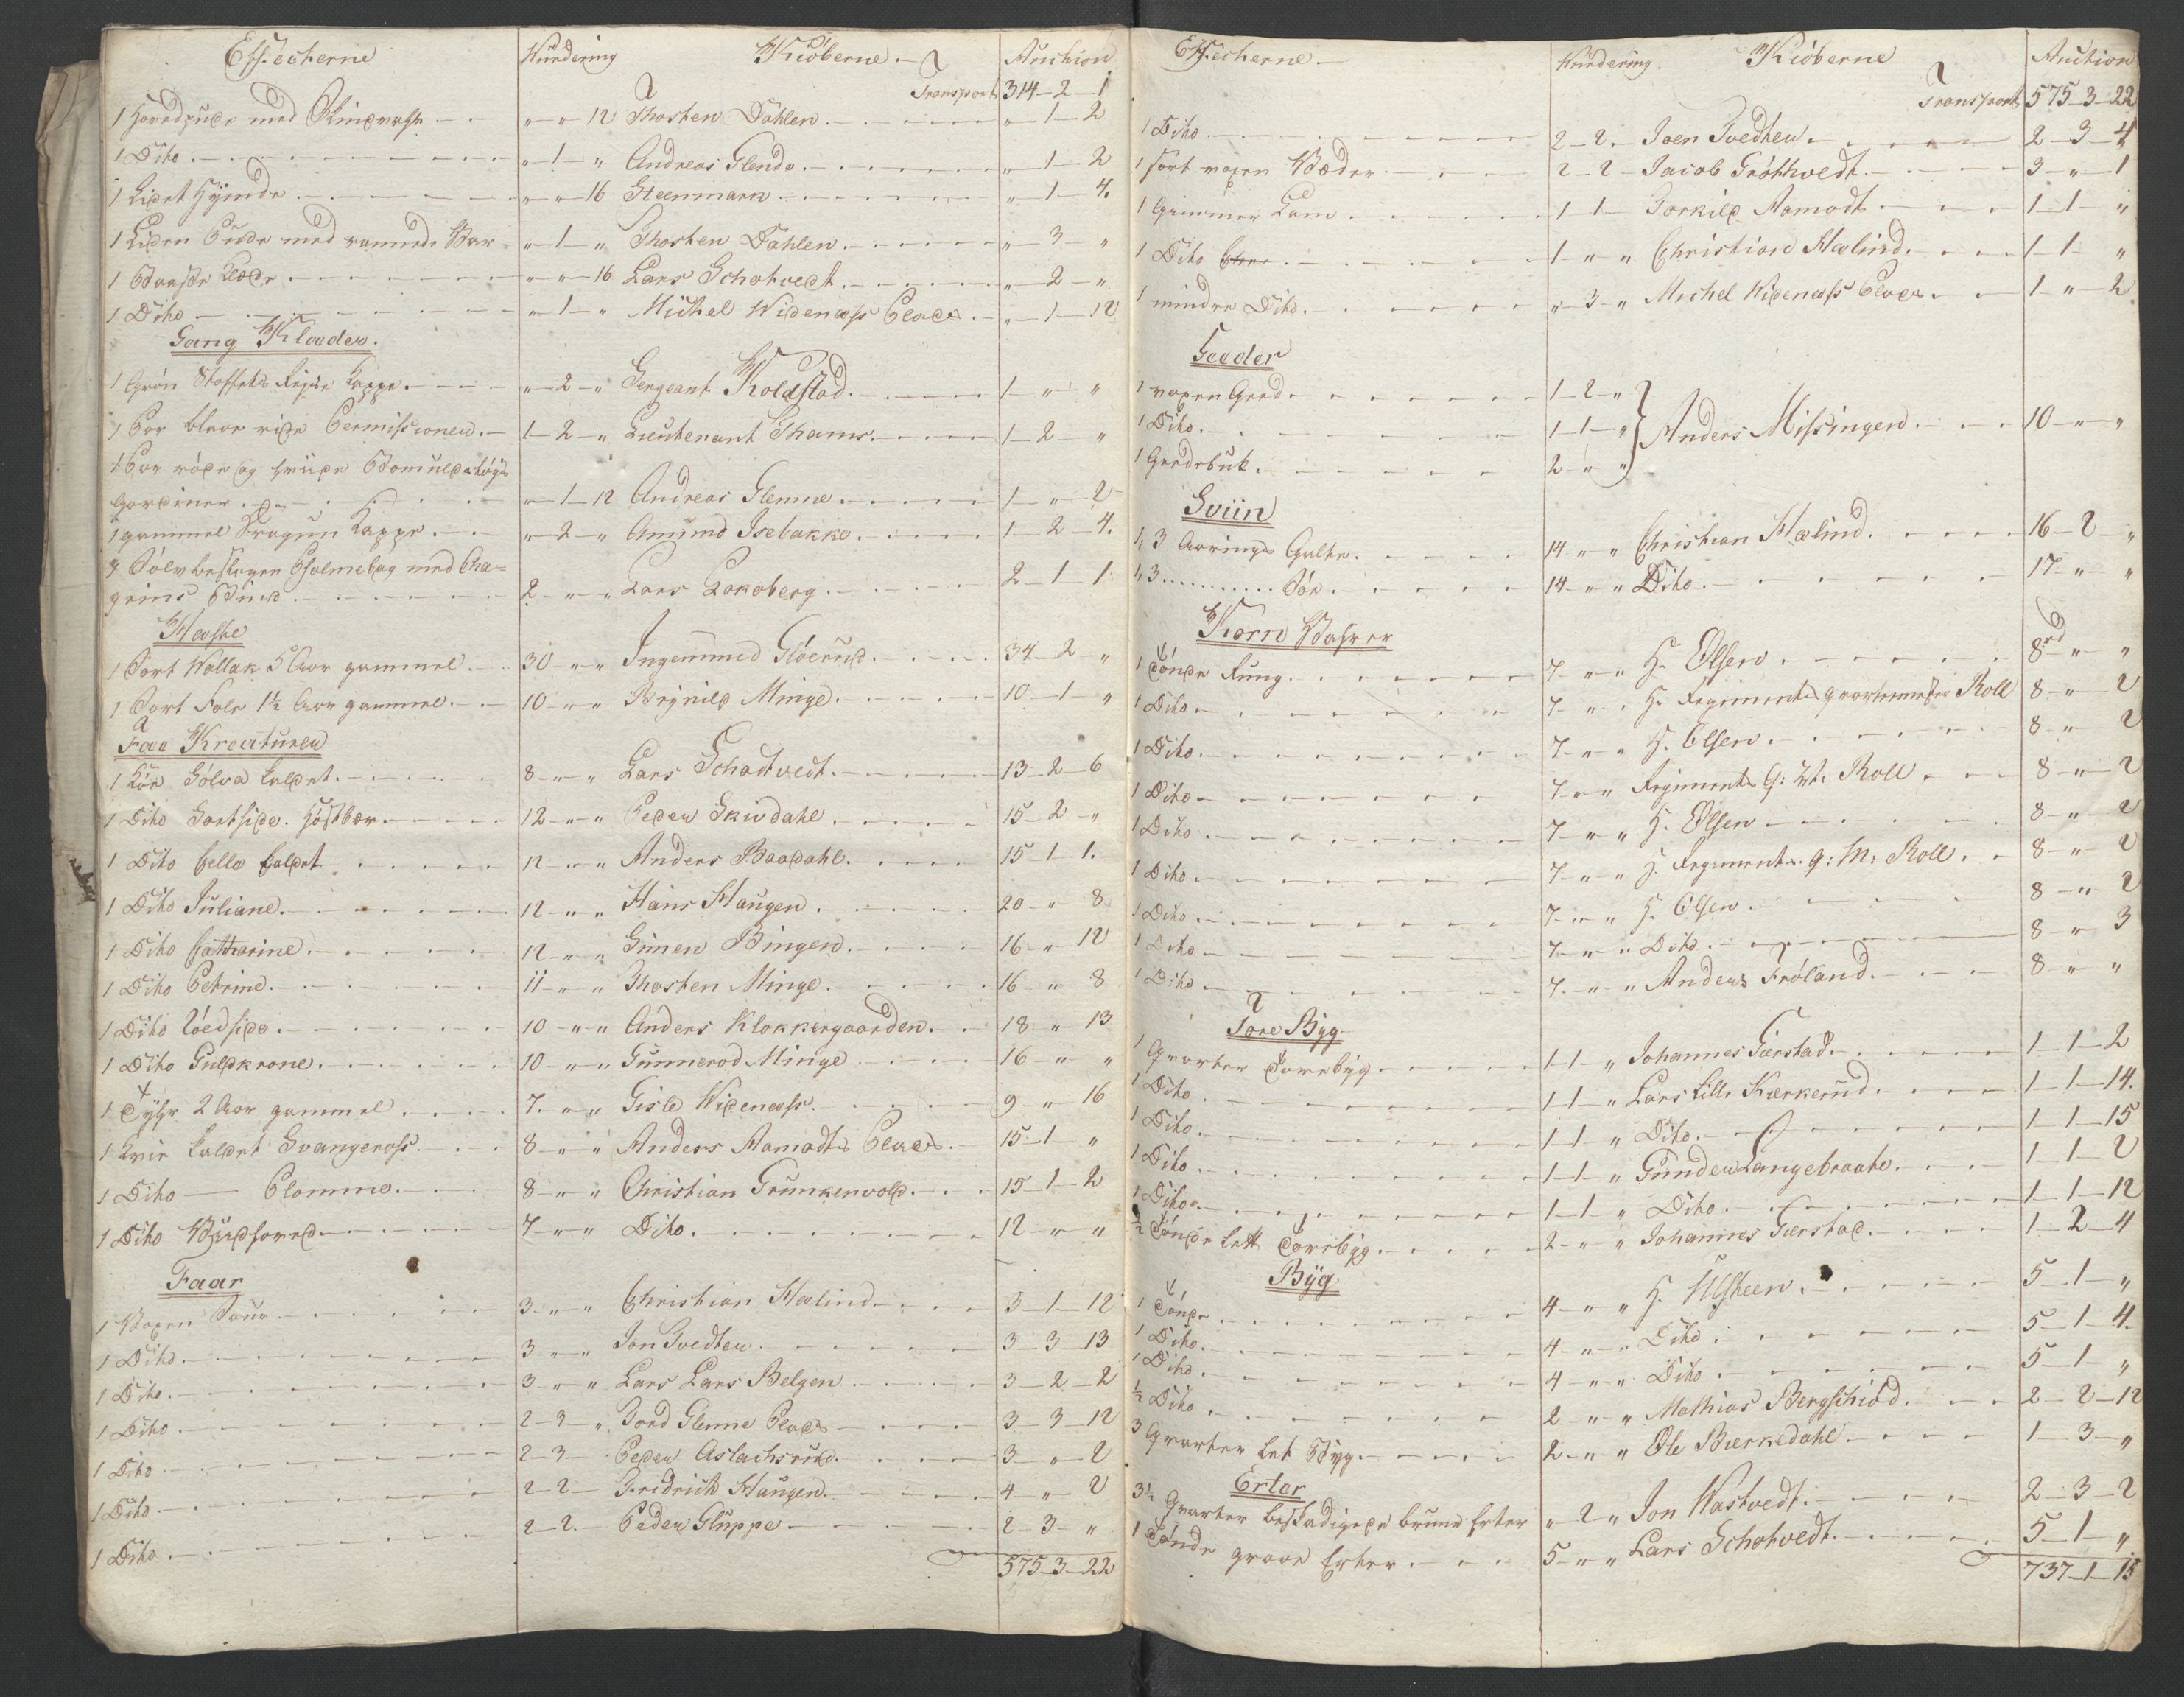 Effecterne Wurdering Kiöberne Auction
Transport 314-2-1
1 Hovedpude med " " 12 Thosten Dahlen " 1-2
1 Dito " 1 " Andreas Glende " 1-2
1 Lidet Hÿnde " " 16 Steenmark " 1-4
1 Liden Pude med Vaar " 1 " Thosten Dahlen " 3 "
1 " " 16 Lars Schotvedt " 2 "
1 Dito " 1 " Michel Widenæss Plads " 1-12
Gang Klæder.
1 Grön Stoffets Kappe " 2 " Sergeant Kolstad 1 " "
1 Par blaae ride Permissioner 1-2 " Lieutenant Thams 1-2 "
1 Par röde og hvide Bomulds töys
Gardiner " 1-12 Andreas Glemne 1 " 2
1 gammel Dragun Kappe " 2 " Amund Isebakke 1-2-4
1 Sölv beslagen Psalmebog med Cha=
grins Bind 2 " " Lars Lokoberg 2-1-1
Hæste
1 Sort Wallak 5 Aar gammel 30 " " Ingemund Glöerud 34-2 "
1 Sort Fole 1½ Aar gammel 10 " " Brynild Minge 10-1 "
Fæe Kreaturer
1 Koe Sölva kaldet 8 " " Lars Schotvedt 13-2-6
1 Dito Sortside Höstbær 12 " " Peder Skivdahl 15-2 "
1 Dito Pello kaldet 12 " " Anders Baadahl 15-1-1
1 Dito Juliane 12 " " Hans Haugen 20 " 8
1 Dito Cathharine 12 " " Simen Bingen 16 " 12
1 Dito Petrine 11 " " Thosten Minge 16 " 8
1 Dito Röedside 10 " " Anders Klokkergaarden 18 " 13
1 Dito Guldkrone 10 " " Gunnerod Minge 16 " "
1 Tÿhr 2 Aar gammel 7 " " Gisle Widenæss 9 " 16
1 Qvie kaldet Svangeross 8 " " Anders Aamodts Plads 15-1 "
1 Dito Plomme 8 " " Christian Grunkenvold 15-1-2
1 Dito 7 " " Dito 12 " "
Faar
1 Voxen Sauv 3 " " Christian Hælind 3-1-12
1 Dito 3 " " Jon Tvedten 3-3-13
1 Dito 3 " " Lars Lars Belgen 3-2-2
1 Dito 2-3 " Tord Glenne Plads 3-3-12
1 Dito 2-3 Peder Aslachsrud 3 " 2
1 Dito 2-2 Fredrich Haugen 4 " 2
1 Dito 2-2 Peder Gluppe 2-3 "
575-3-22
Effecterne Wurdering Kiöberne Auction
Transport 575-3-22
1 Dito 2-2 Joen Tvedten 2-3-4
1 sort voxen Væder 2-2 Jacob Gröthvedt 3 " 1
1 Gimmer Lam 1-1 Torkild Aamodt 1-1 "
1 Dito 1 " " Christian Hælind 1-1 "
1 mindre Dito " 3 " Michel Widenæss Plads 1 " 2
Geeder
1 voxen Geed 1-2 "
1 Dito 1-1 " Anders Missingen 10 " "
1 Geedebuk 2 " "
Sviin
1, 3 Aarings Galte 14 " " Christian Hælind 16-2 "
1, 3 Soe 14 " " Dito 17 " "
Korn Wahrer
1 Tönde Rug 7 " " Hr Olsen 8rd " "
1 Dito 7 " " Hr Regiments qvarteermester Roll 8 " 2
1 Dito 7 " " H. Olsen 8 " 2
1 Dito 7 " " Regiments Q: M: Roll 8 " 2
1 Dito 7 " " H. Olsen 8 " 2
1 Dito 7 " " H. Regiments q: M: Roll 8 " 2
1 Dito 7 " " H. Olsen 8 " 2
1 Dito 7 " " Dito 8 " 3
1 Dito 7 " " Anders Fröland 8 " "
Tore Byg
1 Qvarter Torebÿg 1-1 " Johannes Tierstad 1-1-2
1 Dito 1-1 " Lars Lille Kærkerud 1-1-14
1 Dito 1-1 " Dito 1-1-15
1 Dito 1-1 " Gunder Langebraate 1-1-2
1 Dito 1-1 " Dito 1-1-12
½ Tönde lett Torebÿg 2 " " Johannes Tierstad 1-2-4
Bÿg
1 Tönde 4 " " H. Ulsteen 5-1 "
1 Dito 4 " " Dito 5-1-4
1 Dito 4 " " Dito 5-1 "
½ Dito 2 " " Mathias Bergschiöd 2-2-12
3 Qvarter let Bÿg 2 " " Ole Bierkedahl 1-3 "
Erter
3½ Qvarter beskadigede brune Erter " 2 " Jon Wastvedt 2-3-2
1 Tönde graae Erter 5 " " Lars Schotvedt 5-1 "
737-1-15